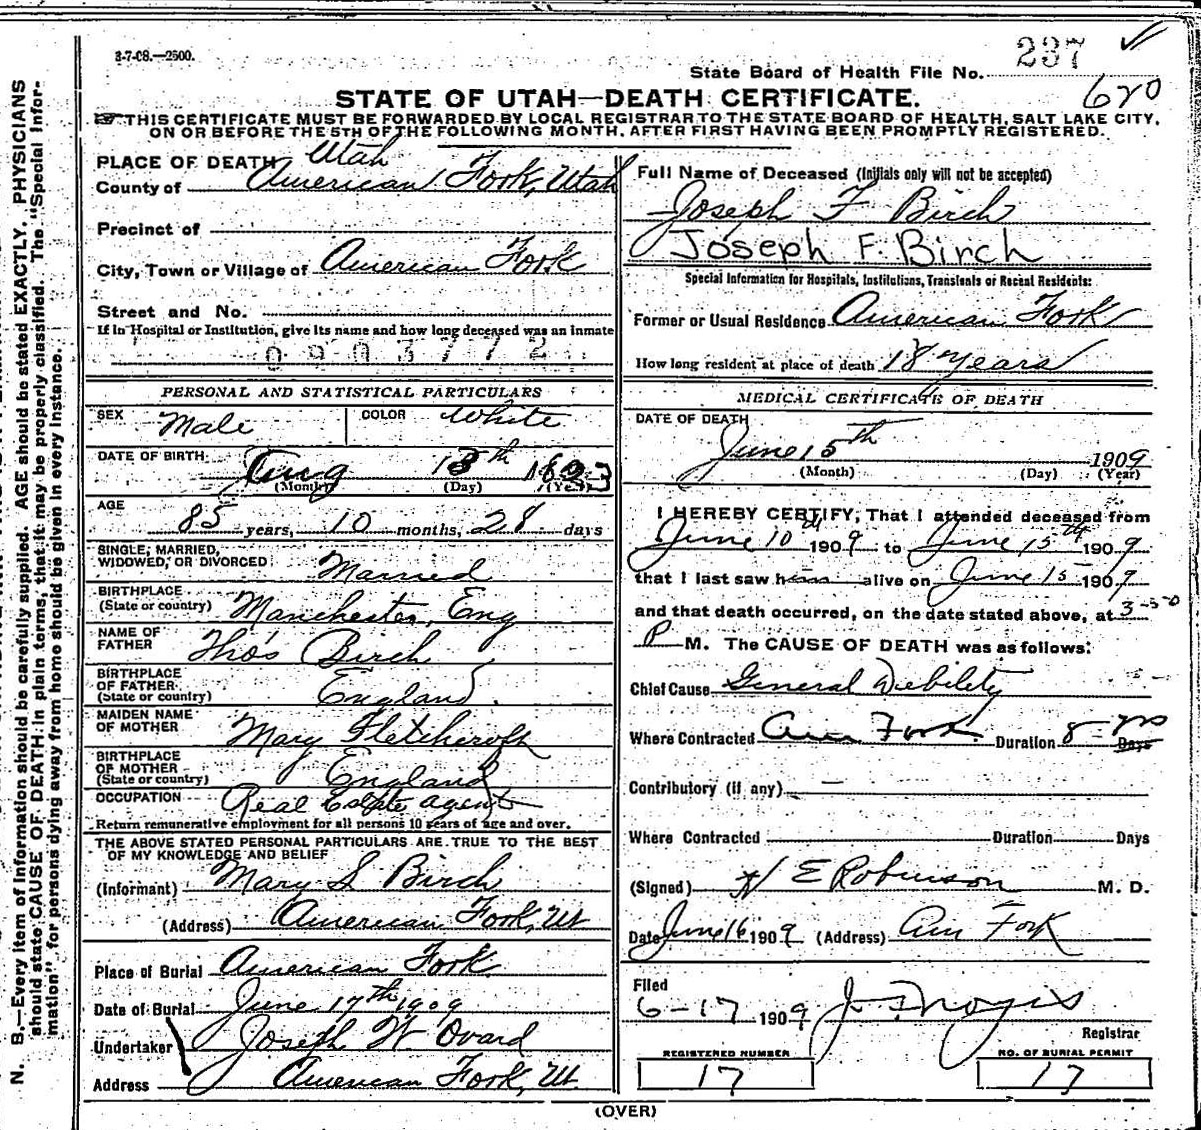 3-7-08.—2500.
237
State Board of Health File No.
620
STATE OF UTAH—DEATH CERTIFICATE.
THIS CERTIFICATE MUST BE FORWARDED BY LOCAL REGISTRAR TO THE STATE BOARD OF HEALTH, SALT LAKE CITY,
ON OR BEFORE THE 5TH OF THE FOLLOWING MONTH, AFTER FIRST HAVING BEEN PROMPTLY REGISTERED.
N. B.—Every item of information should be carefully supplied. AGE should be stated EXACTLY. PHYSICIANS
should state CAUSE OF DEATH in plain terms, that it may be properly classified. The "Special Infor-
mation" for persons dying away from home should be given in every instance.
PLACE OF DEATH Utah
County of American Fork, Utah
Precinct of
City, Town or Village of American Fork
Street and No.
If in Hospital or Institution, give its name and how long deceased was an inmate
0903772
PERSONAL AND STATISTICAL PARTICULARS
SEX Male COLOR White
DATE OF BIRTH Aug 18th
(Month) (Day) (Year)
AGE 85 years, 10 months, 28 days
SINGLE, MARRIED,
WIDOWED, OR DIVORCED Married
BIRTHPLACE
(State or country) Manchester, Eng
NAME OF
FATHER Thos Birch
BIRTHPLACE
OF FATHER
(State or country) England
MAIDEN NAME
OF MOTHER Mary Fletchcroft
BIRTHPLACE
OF MOTHER
(State or country) England
OCCUPATION Real Estate Agent
Return remunerative employment for all persons 10 years of age and over.
THE ABOVE STATED PERSONAL PARTICULARS ARE TRUE TO THE BEST
OF MY KNOWLEDGE AND BELIEF
(Informant) Mary S Birch
(Address) American Fork, Ut
Place of Burial American Fork
Date of Burial June 17th 1909
Undertaker Joseph W Ovard
Address American Fork, Ut
Full Name of Deceased (Initials only will not be accepted)
Joseph F Birch
Joseph F. Birch
Special Information for Hospitals, Institutions, Transients or Recent Residents:
Former or Usual Residence American Fork
How long resident at place of death 18 years
MEDICAL CERTIFICATE OF DEATH
DATE OF DEATH
June 15th 1909
(Month) (Day) (Year)
I HEREBY CERTIFY, That I attended deceased from
June 10th 1909 to June 15th 1909
that I last saw him alive on June 15 1909
and that death occurred, on the date stated above, at 3-50
P M. The CAUSE OF DEATH was as follows:
Chief Cause General Debility
Where Contracted Am Fork Duration 8 yrs Days
Contributory (if any) —
Where Contracted Duration Days
(Signed) E Robinson M. D.
Date June 16 1909 (Address) Am Fork
Filed
6-17 1909
Registrar
REGISTERED NUMBER
17
NO. OF BURIAL PERMIT
17
(OVER)